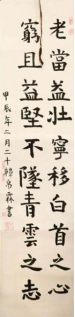 老當益壯寧移白首之心
窮且益堅不墜青雲之志
甲辰年二月二十
書